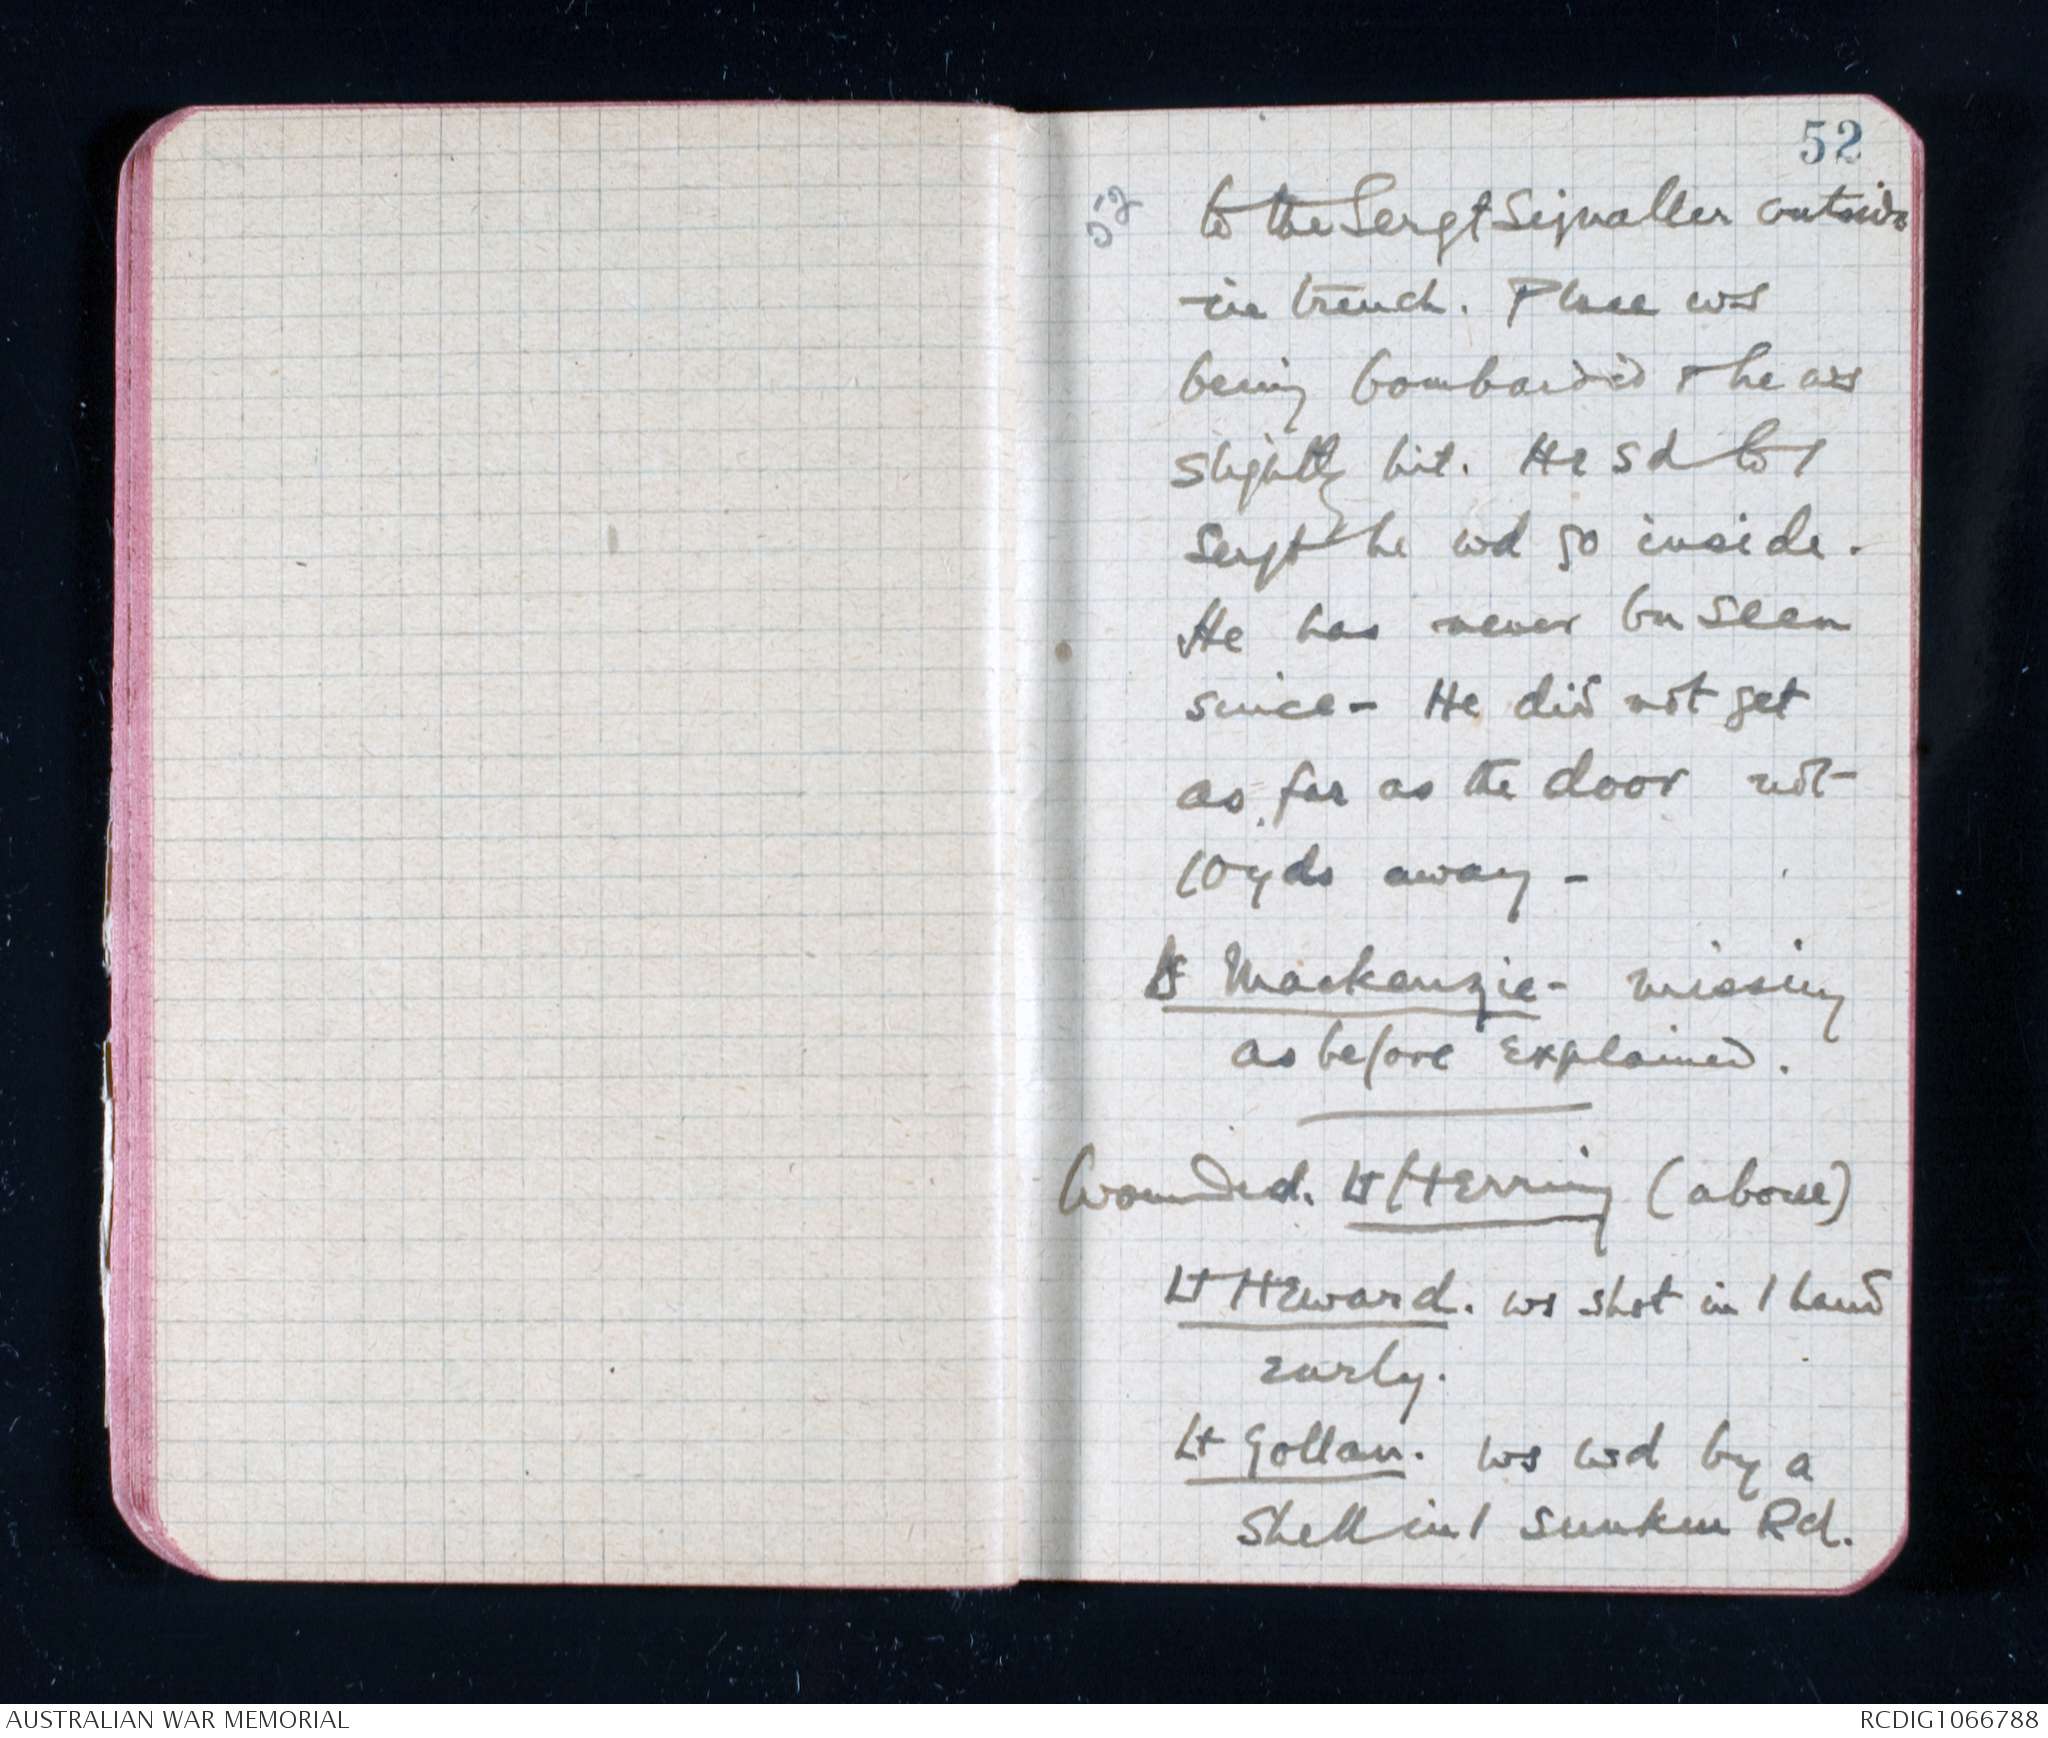 52
52 to the Sergt Signaller outside
in trench. Place ws
being bombarded & he ws
slightly hit. He sd to /
Sergt he wd go inside.
He has never bn seen
since - He did not get
as far as the door not
10 yds away -
Lt Mackenzie - missing
as before explained.
Wounded. Lt Herring (above)
Lt Heward. ws shot in / hand
early.
Lt Gollan. ws wd by a
shell in / sunken Rd.
AUSTRALIAN WAR MEMORIAL
RCDIG1066788